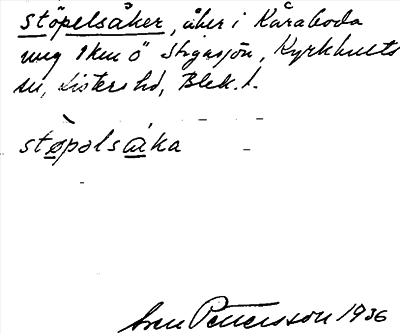 stöpelsåker, åker i Kåraboda
ung 1 km ö Stigasjön, Kyrkhults
sn, Listers hd, Blek. l.
stø̀pəlsåka
Sven Pettersson 1936